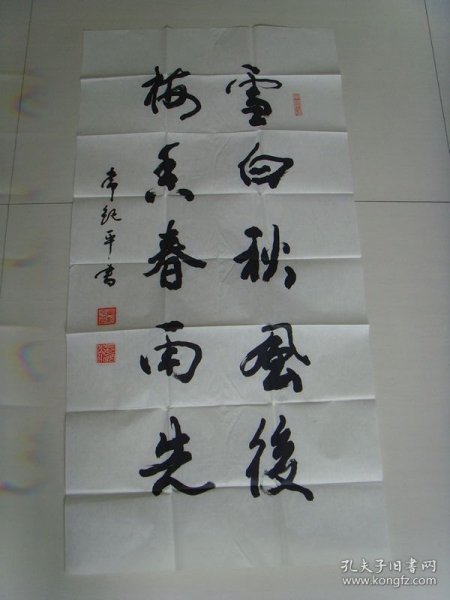 雪白秋風後
梅香春雨先
孔夫子旧书网
www.kongfz.com